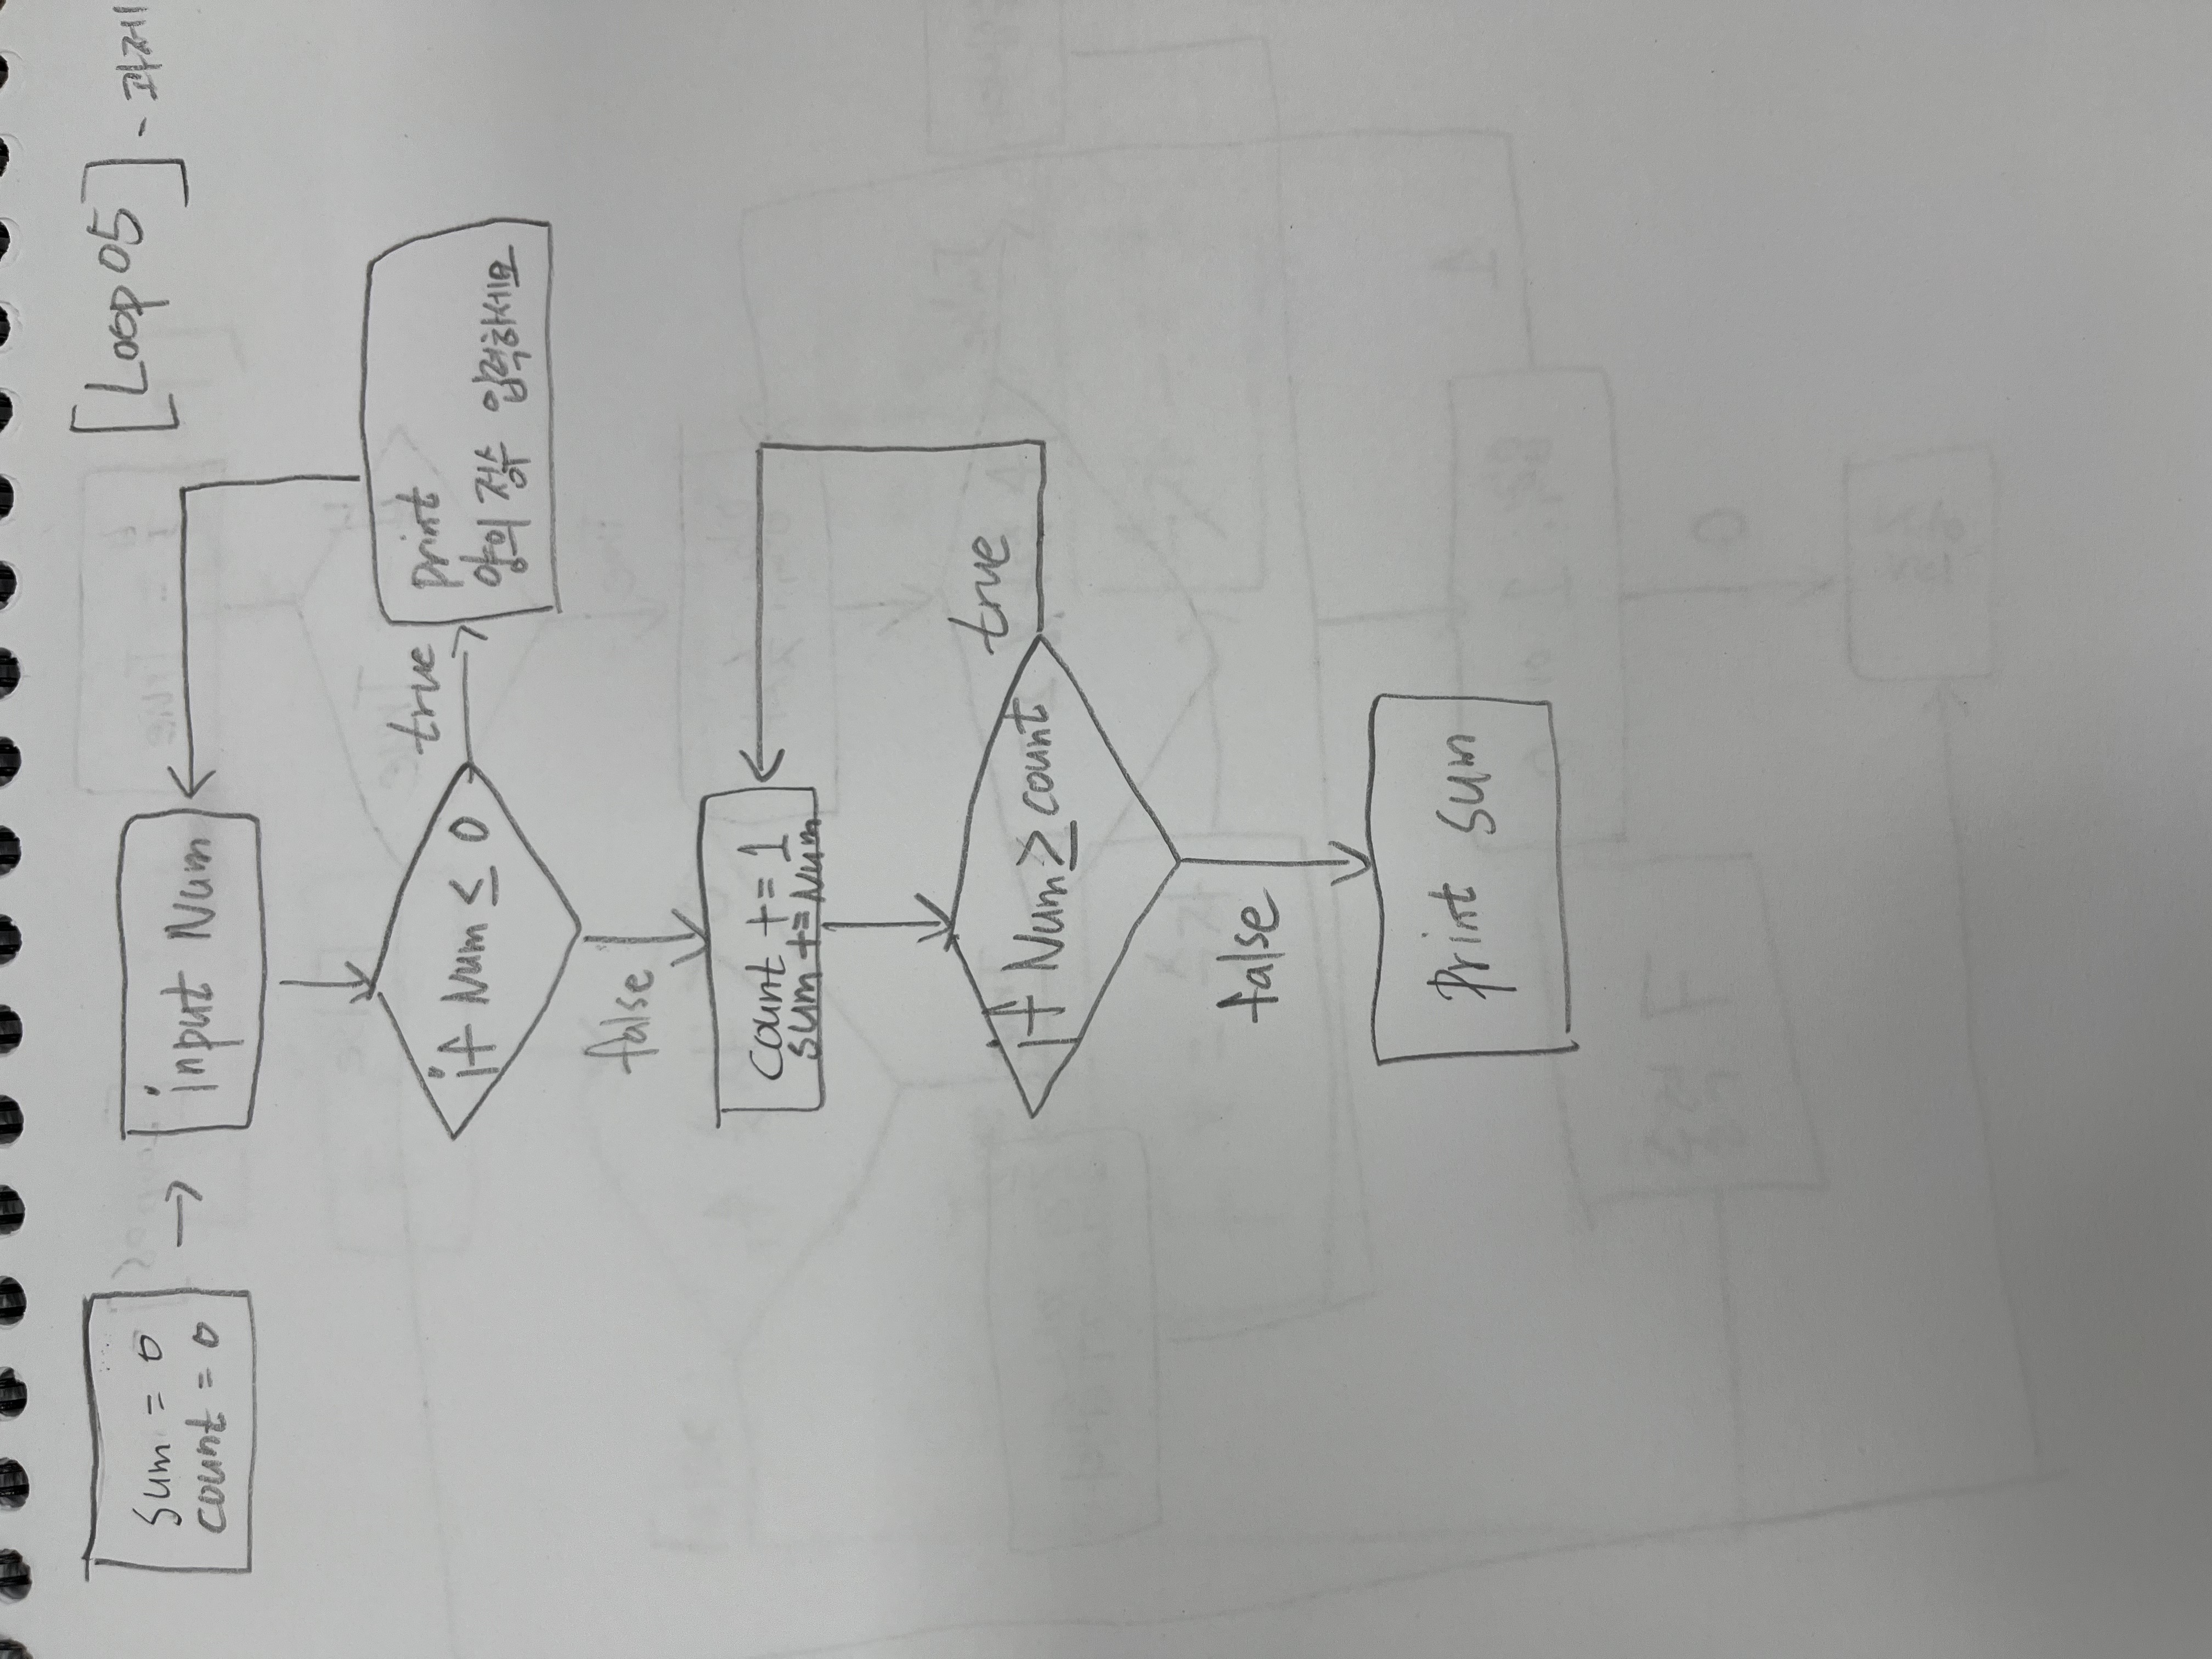 [Loop 05] - 과제
sum = 0
count = 0
input Num
if Num ≤ 0
true
print
양의 정수 입력하세요
false
count += 1
sum += Num
if Num ≥ count
true
false
Print sum